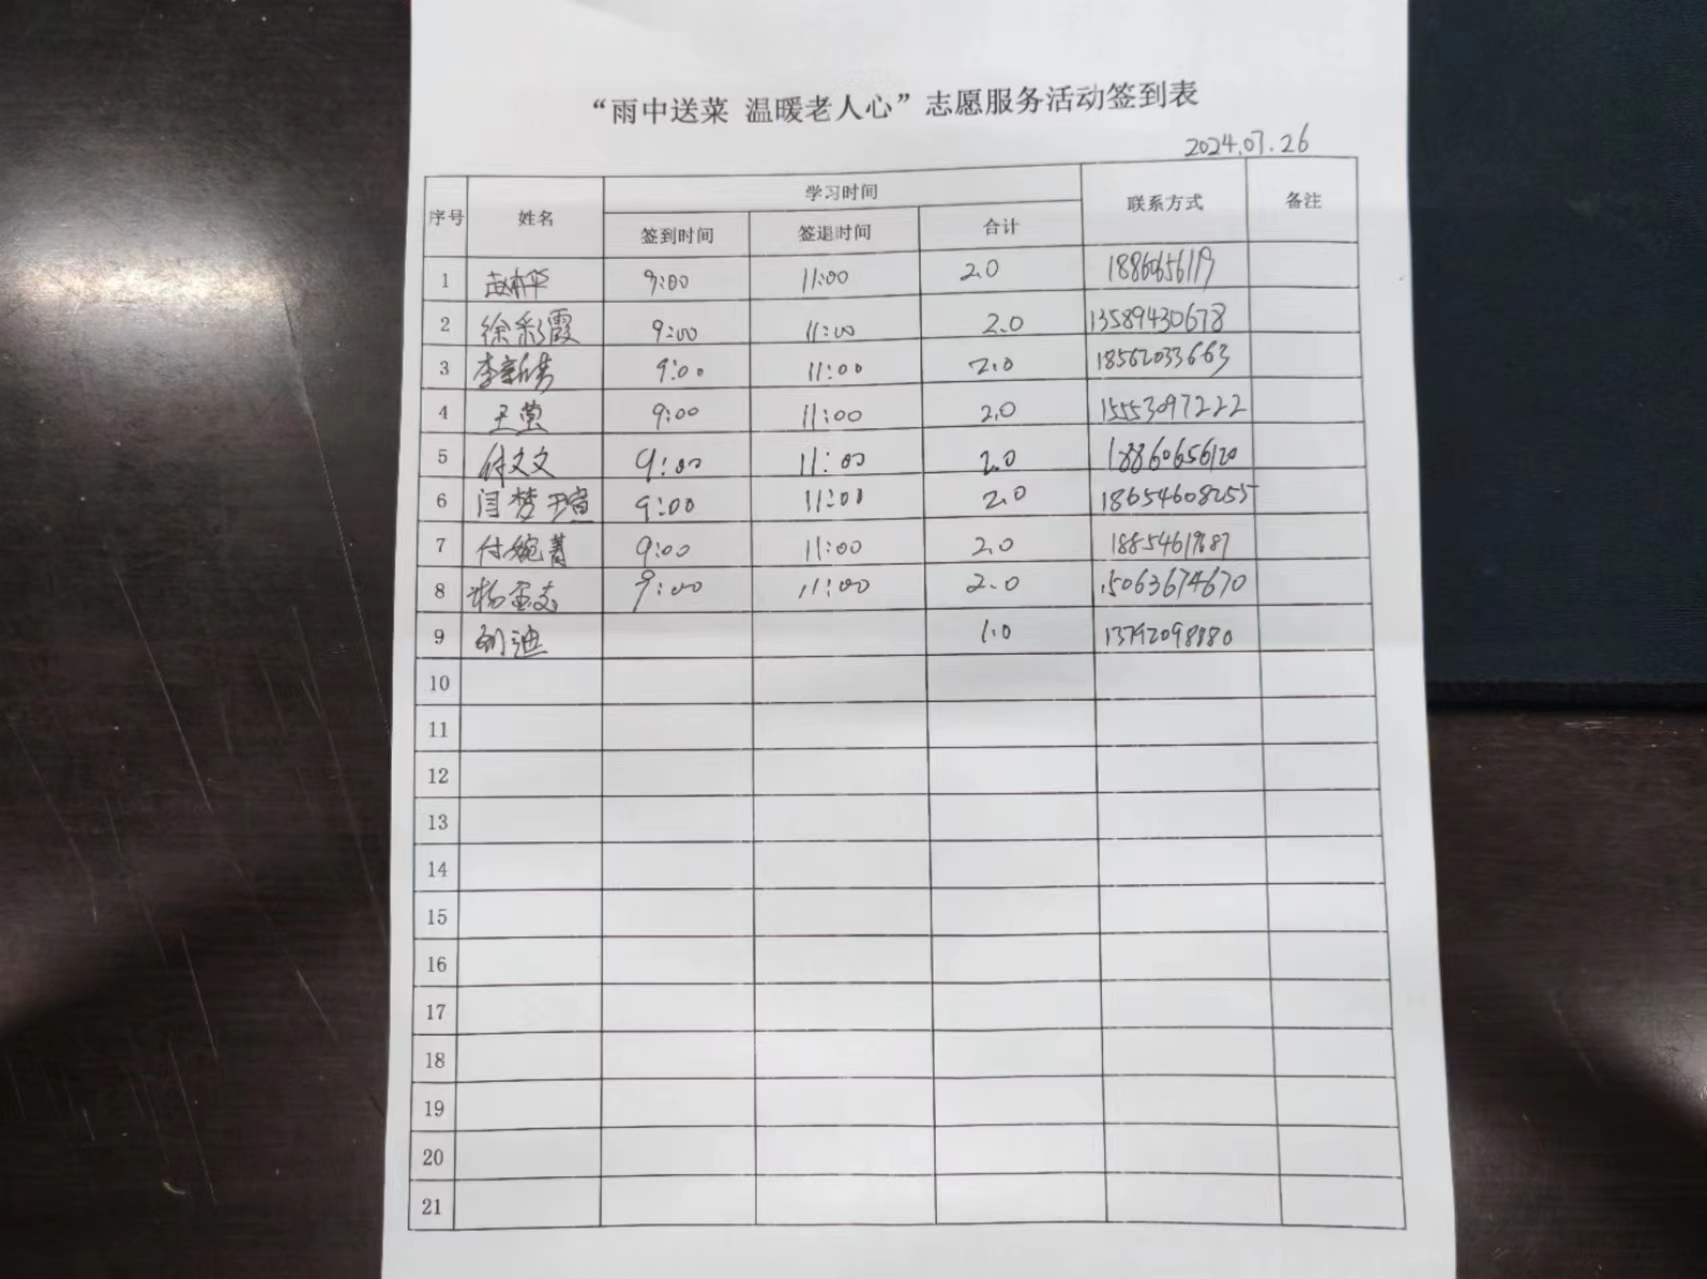 “雨中送菜 温暖老人心”志愿服务活动签到表
2024.07.26
序号 姓名 学习时间 联系方式 备注
签到时间 签退时间 合计
1 9:00 11:00 2.0 18860656119
2 徐彩霞 9:00 11:00 2.0 13589430678
3 李新 9:00 11:00 2.0 18562033663
4 王莹 9:00 11:00 2.0 15553097222
5 付文文 9:00 11:00 2.0 18860656120
6 闫梦瑄 9:00 11:00 2.0 18654608255
7 付婉菁 9:00 11:00 2.0
8 杨 9:00 11:00 2.0 15063674670
9 刘迪 1.0 13792098880
10
11
12
13
14
15
16
17
18
19
20
21